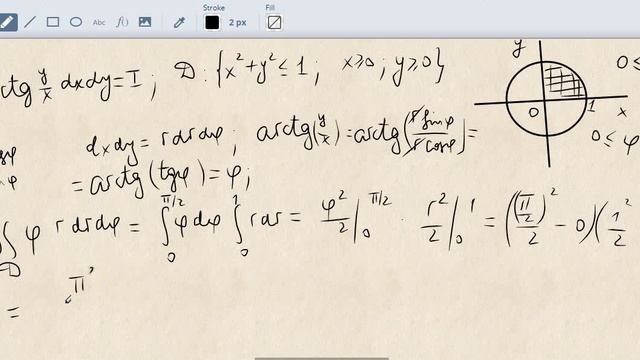 Stroke Fill
Abc 2 px
ctg y/x dxdy = I ; D: {x²+y² ≤ 1 ; x≥0 ; y≥0}
y
0 ≤
0 1 x
dxdy = r dr dφ ; arctg(y/x) = arctg(r sinφ / r cosφ) =
0 ≤ φ
= arctg(tgφ) = φ ;
∫∫_D φ r dr dφ = ∫_0^{π/2} φ dφ ∫_0^1 r dr = φ²/2 |_0^{π/2} · r²/2 |_0^1 = ((π/2)²/2 − 0)(1²/2
= π²